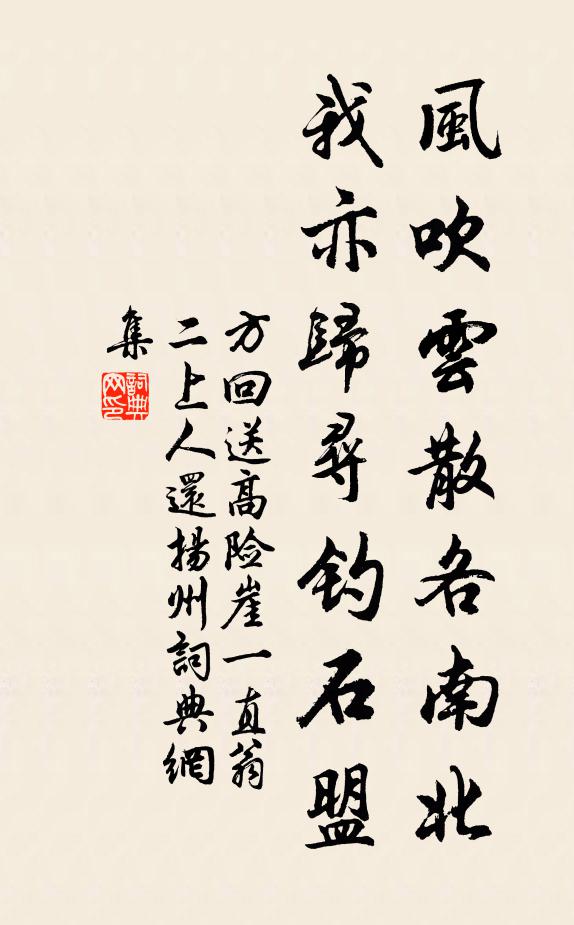 風吹雲散各南北
我亦歸尋釣石盟
方回送高险崖一直翁
二上人還揚州詞典網
集
詞典
网印